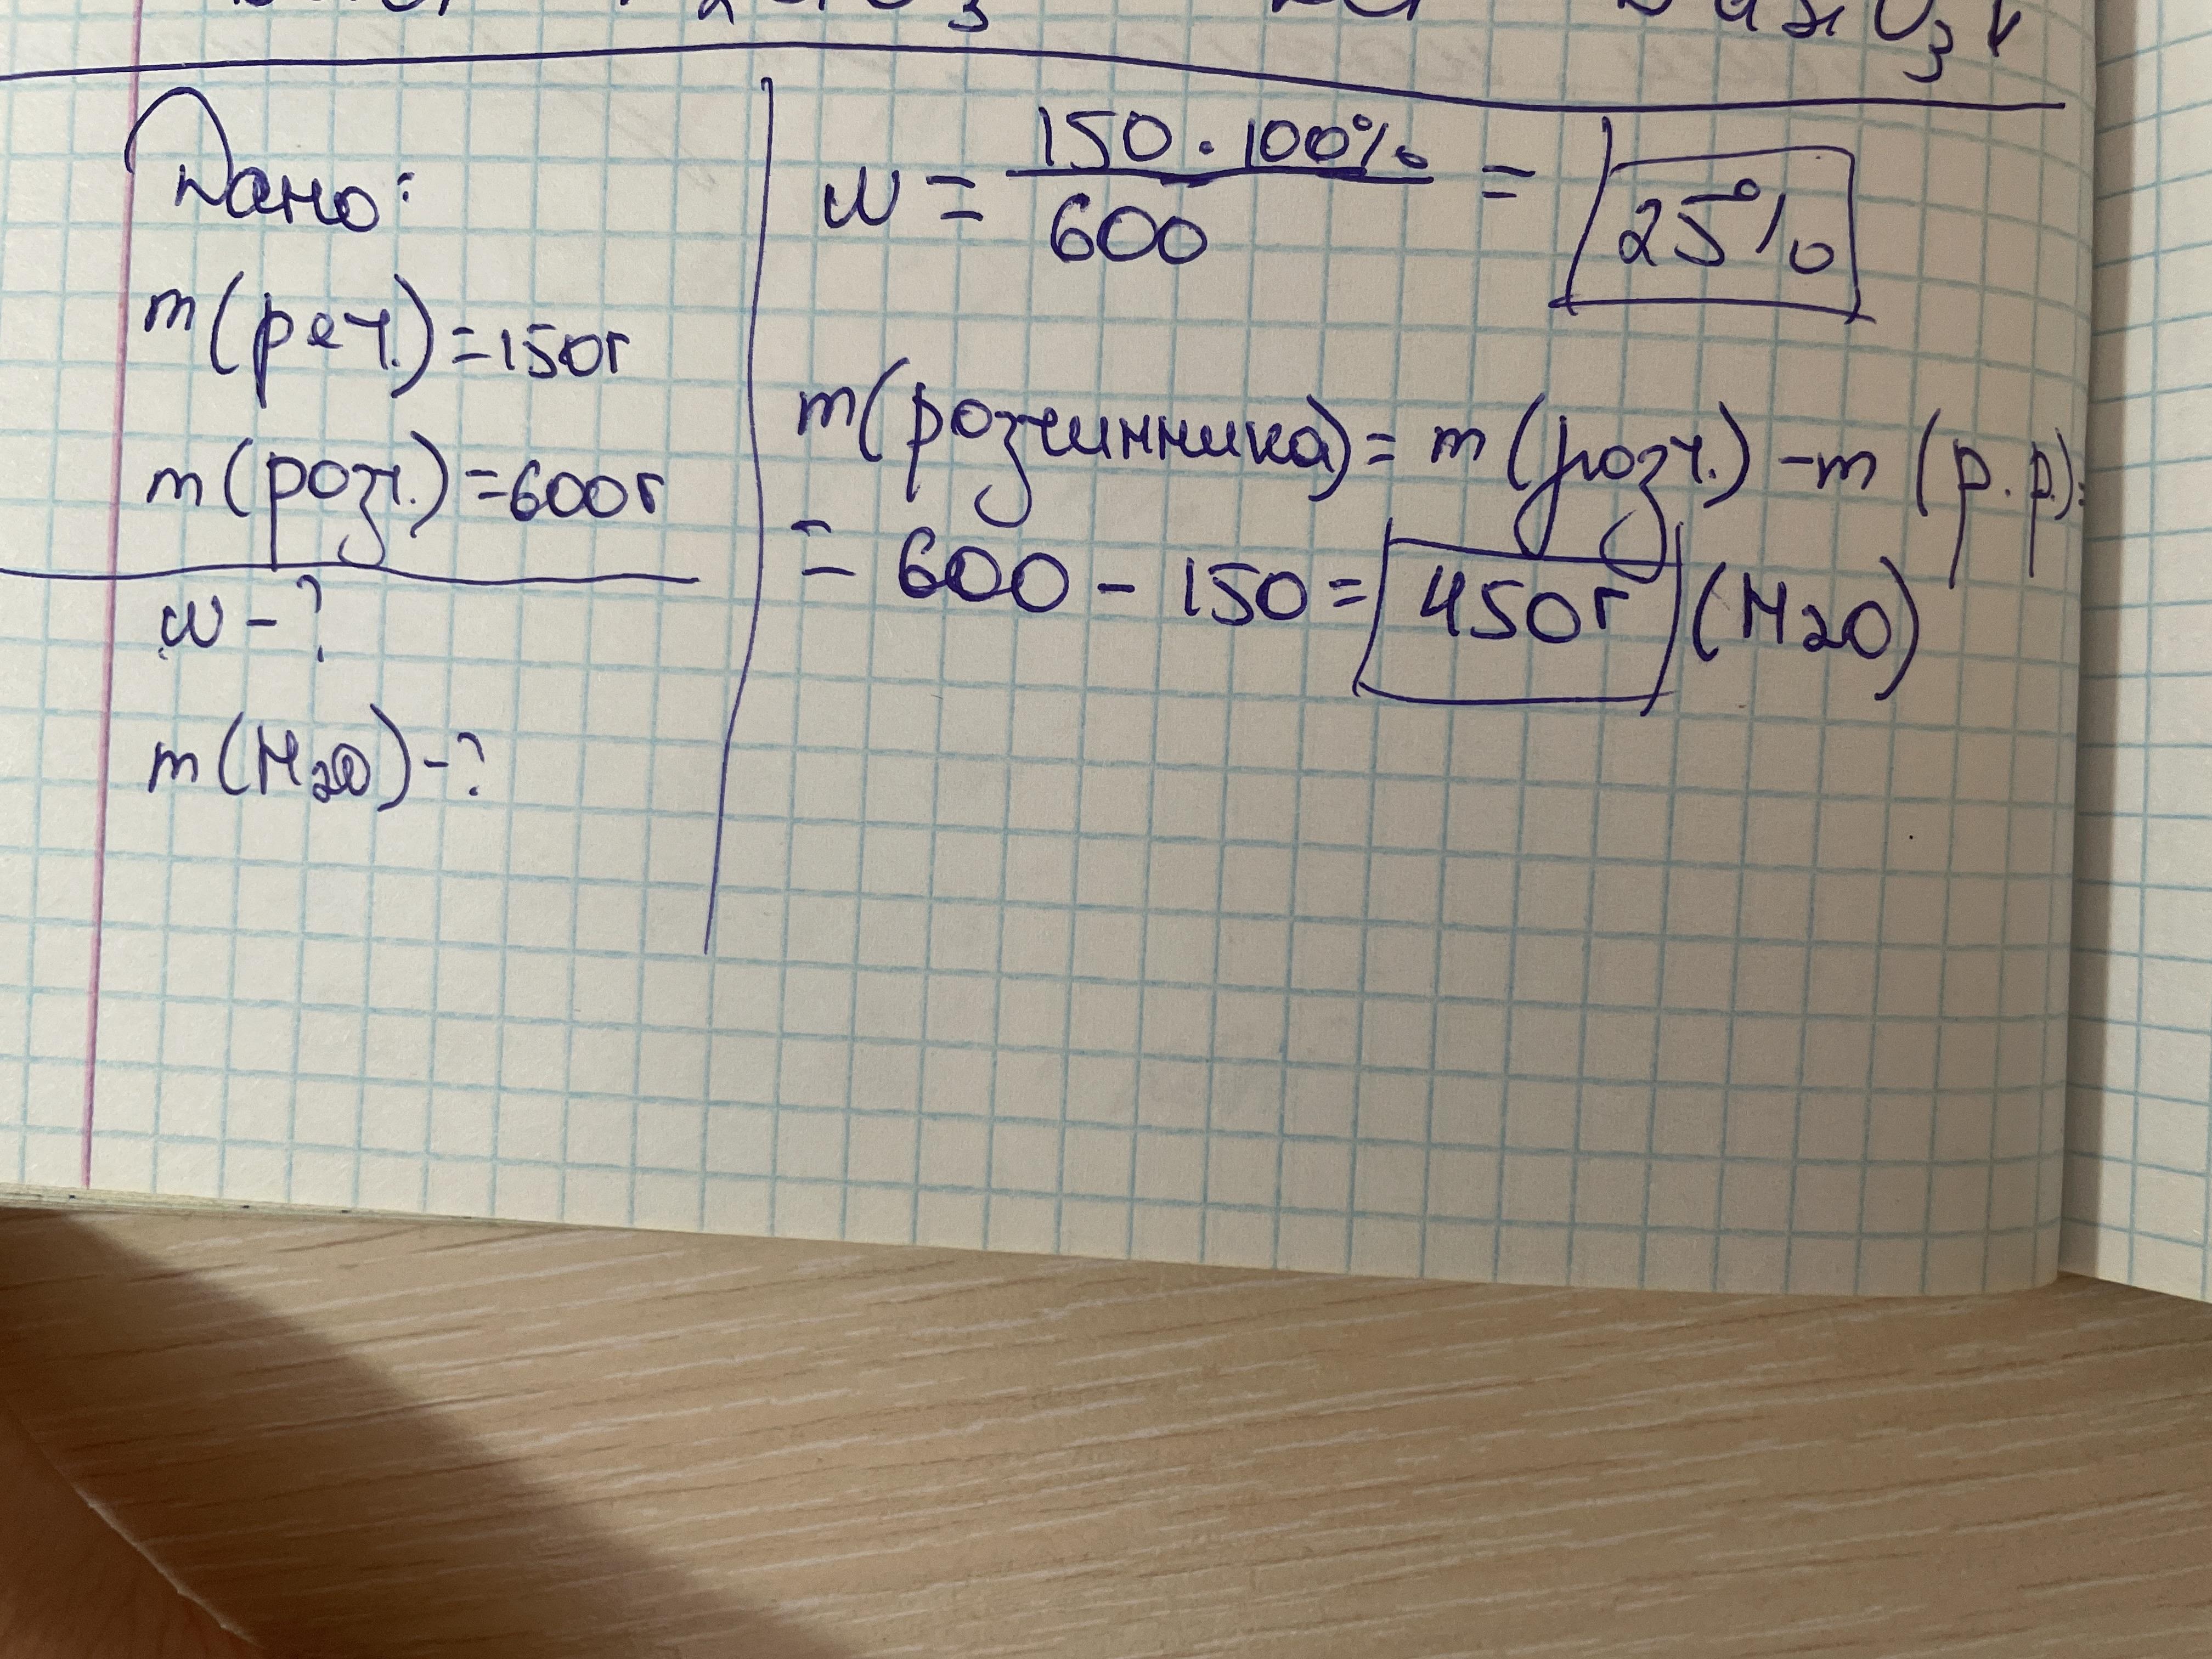 Дано:
m(реч.)=150г
m(розч.)=600г
w-?
m(H2O)-?
w = 150 · 100% / 600 = 25%
m(розчинника)= m(розч.) -m (р.р.)=
= 600 - 150= 450г (H2O)